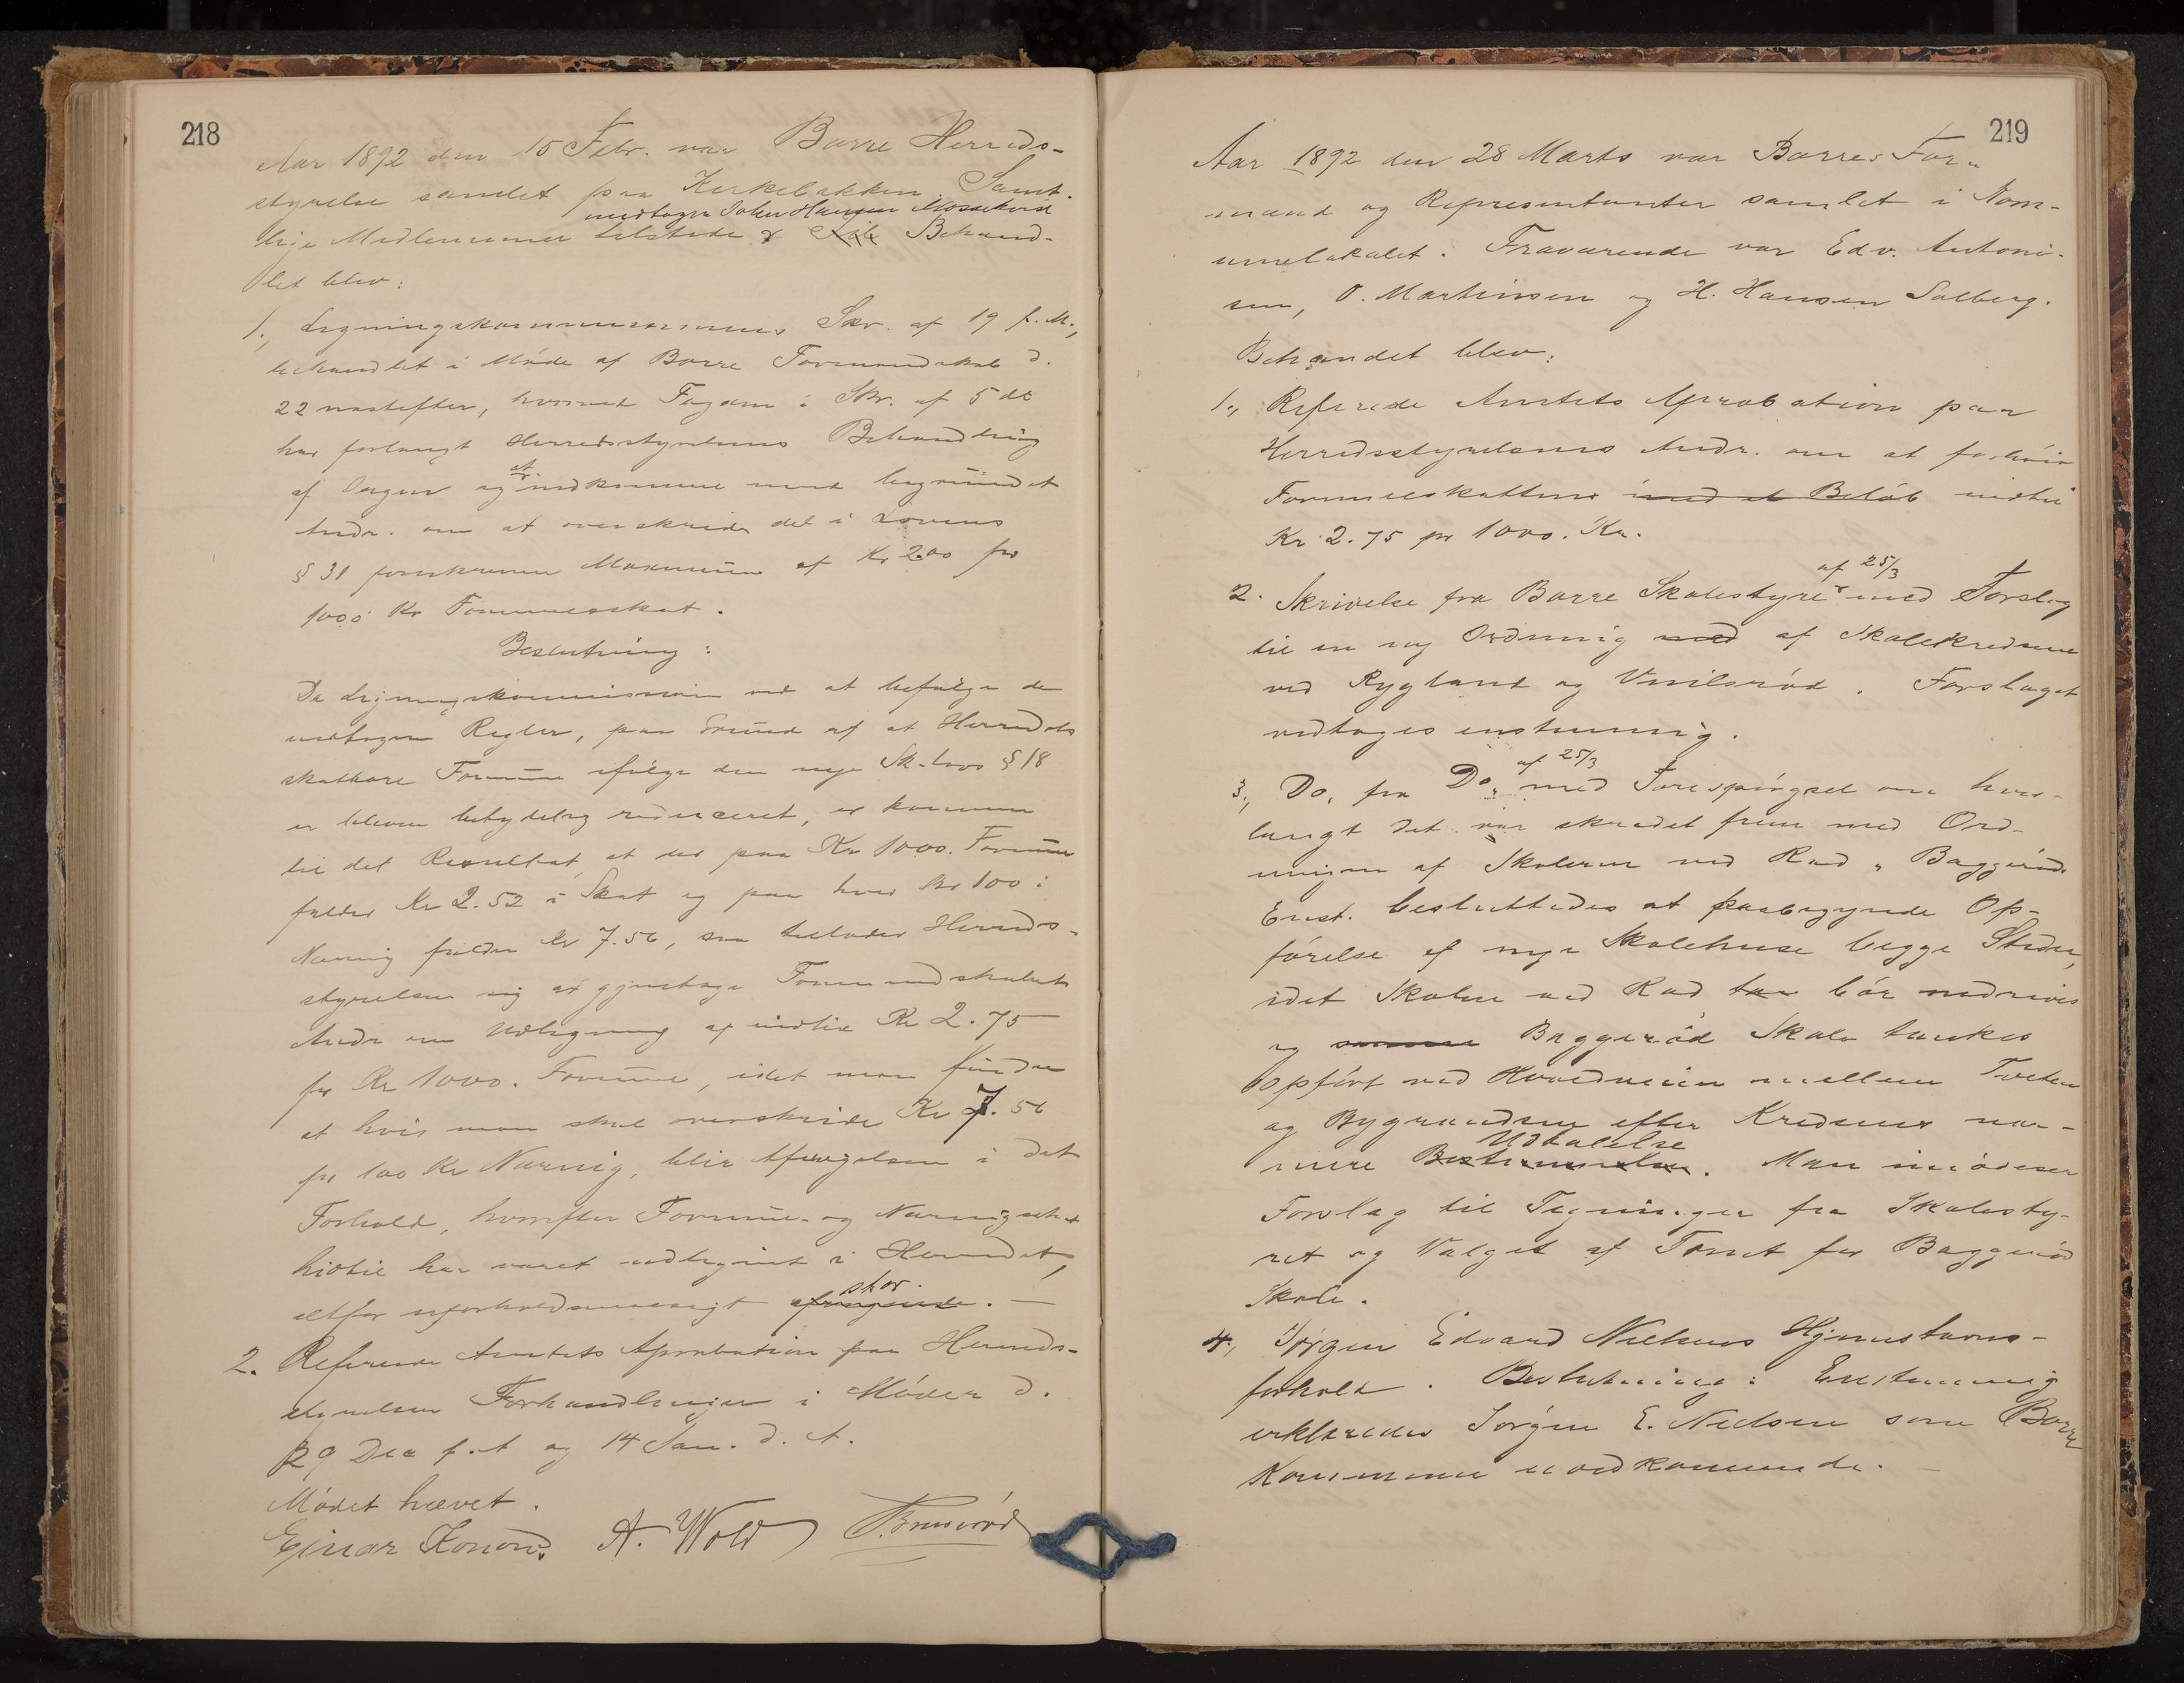 218
Aar 1892 den 15 Febr. var Borre Herreds-
styrelse samlet paa Kirkebakken. Samt-
undtagen Johan Hansen
lige Medlemmer tilstede Behand-
let blev:
1., Ligningskommissionens Skr. af 19 f. M.,
behandlet i Møde af Borre Formandskab d.
22 næstefter, hvorved Fogden i Skr. af 5 ds
har forlangt Herredsstyrelsens Behandling
af Sagen og at indkomme med begrundet
Andr. om at overskride det i Lovens
§ 31 foreskrevne Maximum af Kr 2.00 pr
1000 Kr Formuesskat.
Beslutning:
Da Ligningskommissionen ved at befølge de
vedtagne Regler, paa Grund af at Herredets
skatbare Formue ifølge den nye Sk.lovs § 18
er bleven betydelig reduceret, er kommen
til det Resultat, at der paa Kr 1000. Formue
falder Kr 2.52 i Skat og paa hver Kr 100 i
Næring falder Kr 7.56, saa tillader Herreds-
styrelsen sig at gjentage Formandskabets
Andr om Udligning af indtil Kr 2.75
pr Kr 1000. Formue, idet man finder
at hvis man skal overskride Kr 7.56
pr 100 Kr Næring, blir Afvigelsen i det
Forhold, hvorefter Formue- og Næringsskat
hidtil har været udlignet i Herredet,
altfor uforholdsmæssigt stor. —
2. Refereret Amtets Aprobation paa Herreds-
styrelsens Forhandlinger i Møder d.
29 Dec f. A og 14 Jan. d. A.
Mødet hævet.
Einar A. Wold
219
Aar 1892 den 28 Marts var Borres For-
mænd og Repræsentanter samlet i Kom-
munelokalet. Fraværende var Edv. Antoni-
sen, O. Martinsen og H. Hansen Solberg.
Behandlet blev:
1., Refererede Amtets Aprobation paa
Herredsstyrelsens Andr. om at forhøie
Formuesskatten med et Beløb indtil
Kr 2.75 pr 1000. Kr.
af 25/3
2. Skrivelse fra Borre Skolestyre med Forslag
til en ny Ordning med af Skolekredsene
ved Rygland og . Forslaget
vedtoges enstemmig.
af 25/3
3., Do, fra Do, med Forespørgsel om hvor-
langt det var skredet frem med Ord-
ningen af Skolerne ved Rød " Baggerød.
Enst. besluttedes at paabegynde Op-
førelse af nye Skolehuse begge Steder,
idet Skolen ved Rød bør nedrives
og Baggerød Skole tænkes
opført ved Hovedveien mellem Tveten
og efter Kredsens nær-
Udtalelse
mere Bestemmelse. Man imødeser
Forslag til Tegninger fra Skolesty-
ret og Valget af Tomt for Baggerød
Skole.
4., Jørgen Edvard Nielsens Hjemstavns-
forhold. Beslutning: Enstemmig
erklæredes Jørgen E. Nielsen som Borre
Kommune uvedkommende. —